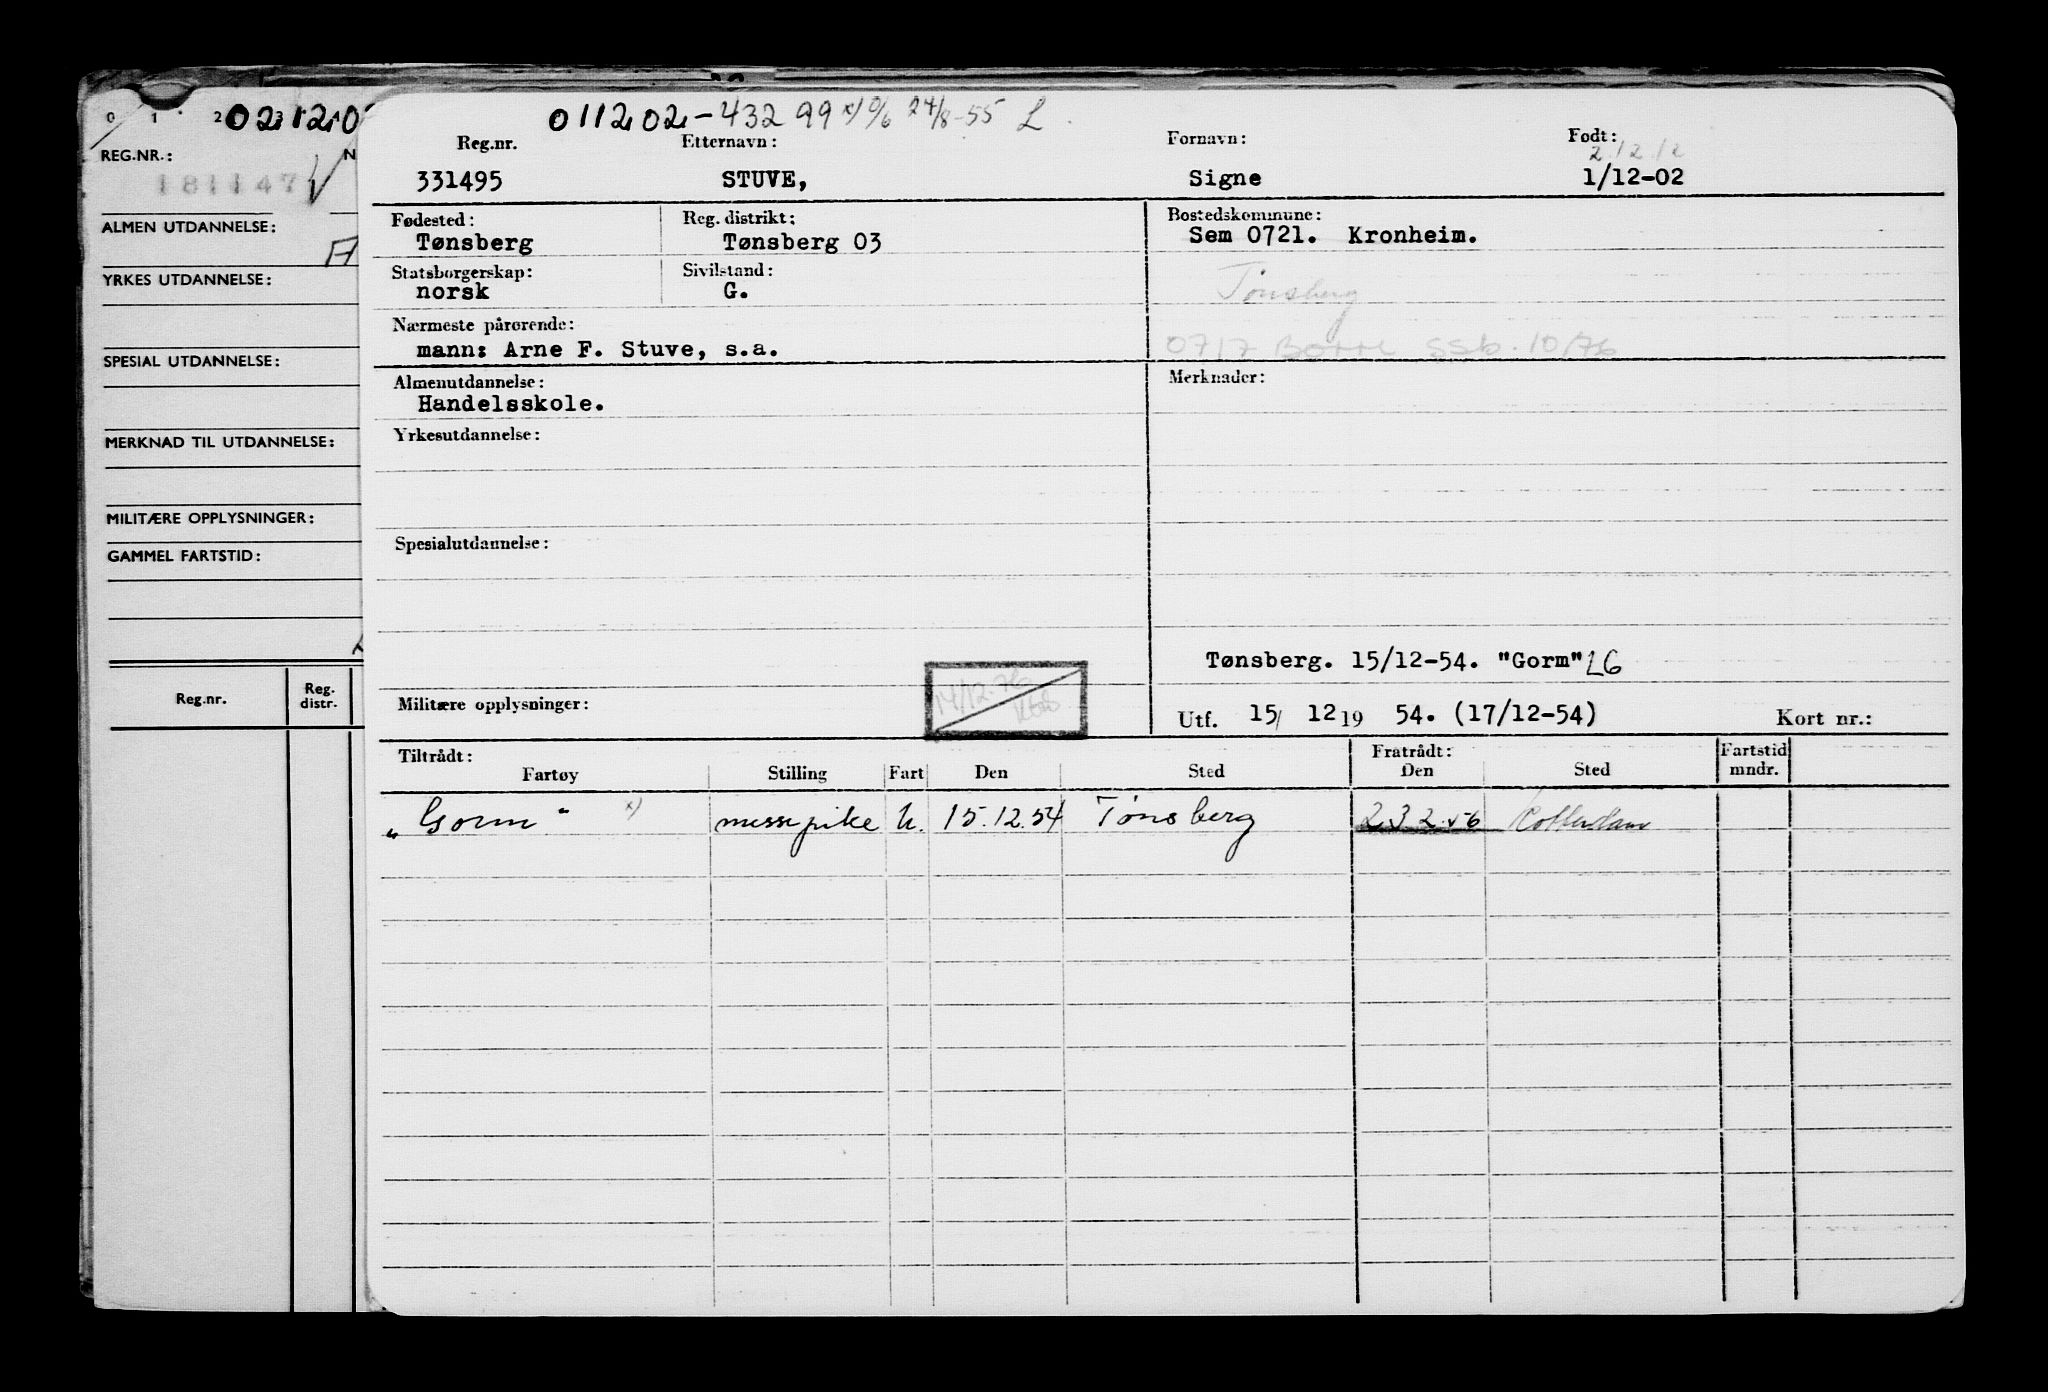 0 1 2
02 12 0
REG.NR.:
N
181147
ALMEN UTDANNELSE:
A
YRKES UTDANNELSE:
SPESIAL UTDANNELSE:
MERKNAD TIL UTDANNELSE:
MILITÆRE OPPLYSNINGER:
GAMMEL FARTSTID:
Reg.nr.
Reg. distr.
011202-432 99 x) 0/6 24/8-55 L
Reg.nr. Etternavn: Fornavn: Født:
2/12/2
331495 STUVE, Signe 1/12-02
Fødested: Reg. distrikt: Bostedskommune:
Tønsberg Tønsberg 03 Sem 0721. Kronheim.
Statsborgerskap: Sivilstand:
norsk G. Tønsberg
Nærmeste pårørende:
mann: Arne F. Stuve, s.a. 0717 Borre SSb. 10/76
Almenutdannelse: Merknader:
Handelsskole.
Yrkesutdannelse:
Spesialutdannelse:
Tønsberg. 15/12-54. "Gorm" LG
14/12-76
Militære opplysninger: Utf. 15/ 12 19 54. (17/12-54) Kort nr.:
Tiltrådt: Fratrådt: Fartstid
Fartøy Stilling Fart Den Sted Den Sted mndr.
„Gorm" x) messepike U. 15.12.54 Tønsberg 23 2 56 Rotterdam